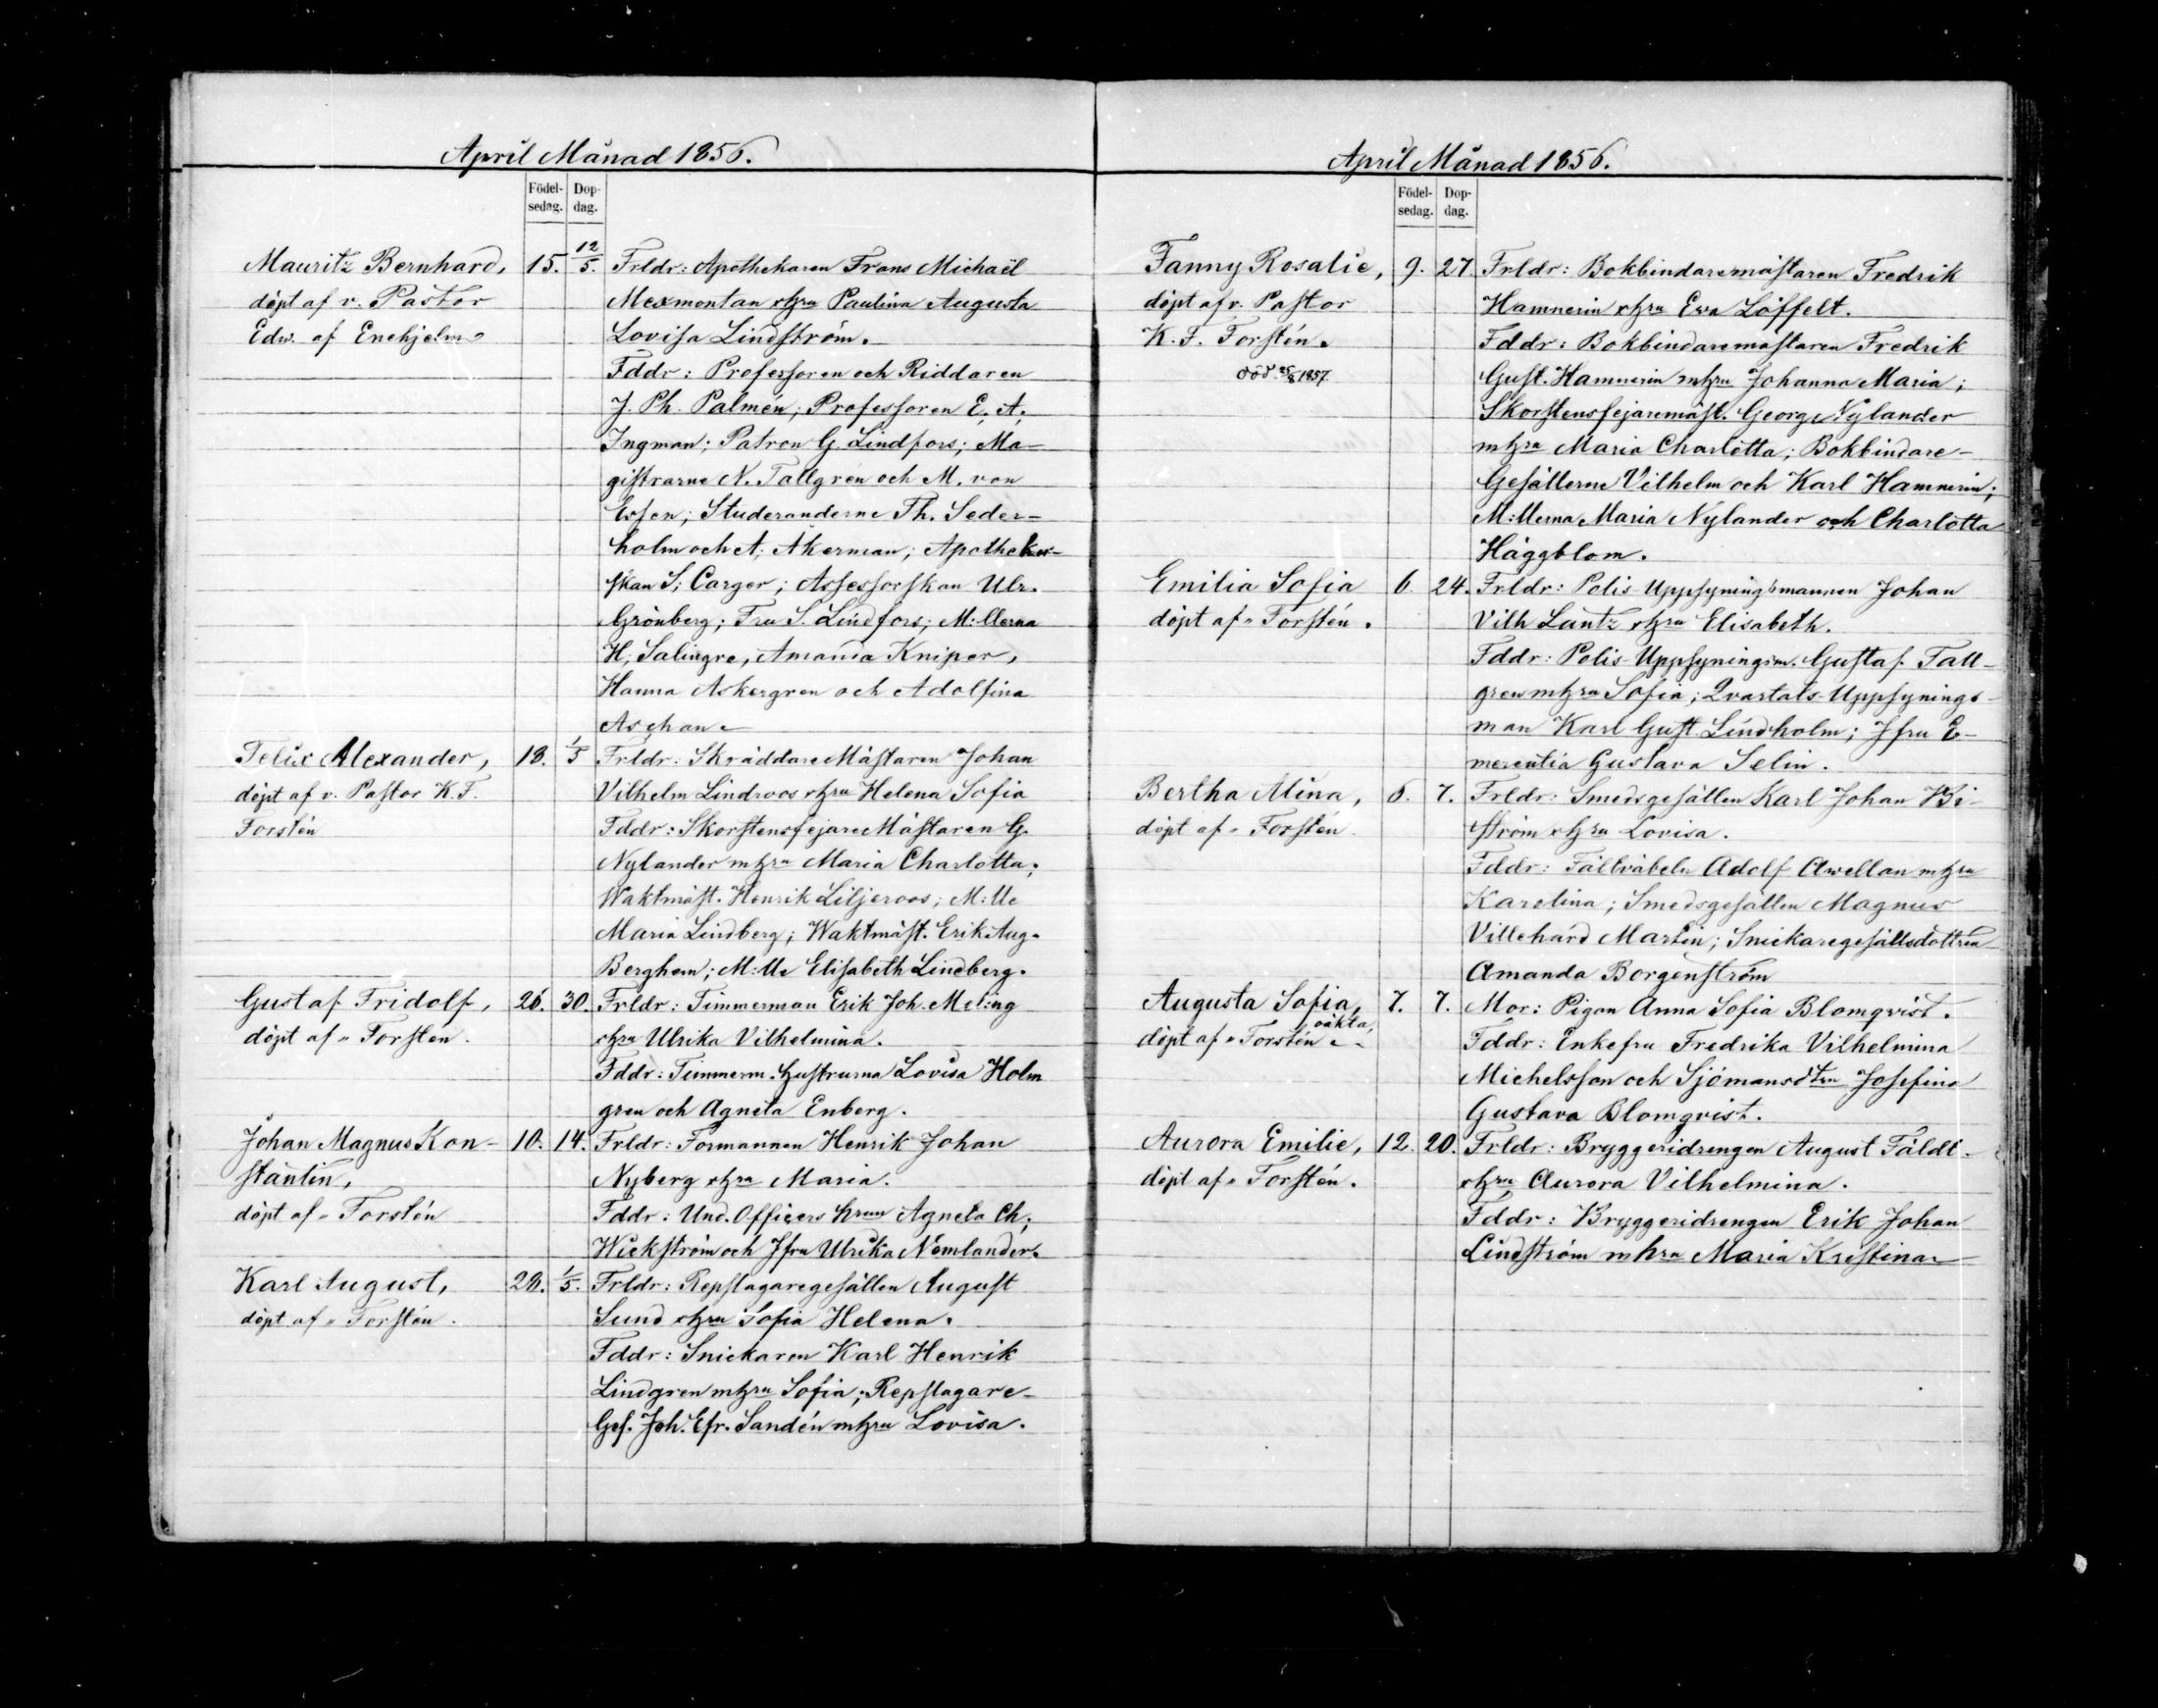 April Månad 1856.
Födel-
sedag.
Dop-
dag.
Mauritz Bernhard,
döpt af v. Pastor
Edw. af Enehjelm
15. 12/5.
Frldr: Apothekaren Frans Michaël
Mexmontan o. hru Paulina Augusta
Lovisa Lindström.
Fddr: Professoren och Riddaren
J. Ph. Palmén; Professoren E. A.
Ingman; Patron G. Lindfors; Ma-
gistrarne N. Tallgren och M. von
Essen; Studeranderne Th. Seder-
holm och A. Åkerman; Apotheker-
skan S. Carger; Assessorskan Ulr.
Grönberg; Fru S. Lindfors; M:llerna
H. Salingre, Amanda Kniper,
Hanna Askergren och Adolfina
Aschan.
Felix Alexander,
döpt af v. Pastor K. F.
Forstén
18. 1/5
Frldr: SkräddareMästaren Johan
Vilhelm Lindroos o. hru Helena Sofia
Fddr: SkorstensfejareMästaren G.
Nylander m. hru Maria Charlotta;
Waktmäst. Henrik Liljeroos; M:lle
Maria Lindberg; Waktmäst. Erik Aug.
Berghem; M:lle Elisabeth Lindberg.
Gustaf Fridolf,
döpt af " Forsten.
26. 30.
Frldr: Timmerman Erik Joh. Meling
o. hru Ulrika Vilhelmina.
Fddr: Timmerm. hustrurna Lovisa Holm
gren och Agneta Enberg.
Johan Magnus Kon-
stantin,
döpt af " Forstén
10. 14.
Frldr: Formannen Henrik Johan
Nyberg o. hru Maria.
Fddr: Und. Officers hrun Agneta Ch.
Wickström och Jfru Ulrika Nömlander.
Karl August,
döpt af " Forstén.
28. 1/5.
Frldr: Repslagaregesällen August
Sund o. hru Sofia Helena.
Fddr: Snickaren Karl Henrik
Lindgren m. hru Sofia; Repslagare-
Ges. Joh. Efr. Sandén m. hru Lovisa.
April Månad 1856.
Födel-
sedag.
Dop-
dag.
Fanny Rosalie,
döpt af v. Pastor
K. F. Forstén.
död 1857.
9. 27.
Frldr: Bokbindaremästaren Fredrik
Hamnerin o. hru Ewa Löffelt.
Fddr: Bokbindaremästaren Fredrik
Gust. Hamnerin m. hru Johanna Maria;
Skorstensfejaremäst. Georg Nylander
m. hru Maria Charlotta; Bokbindare-
Gesällerne Vilhelm och Karl Hamnerin;
M:llerna Maria Nylander och Charlotta
Häggblom.
Emilia Sofia
döpt af " Forstén.
6. 24.
Frldr: Polis-Uppsyningsmannen Johan
Vilh Lantz o. hru Elisabeth.
Fddr: Polis-Uppsyningsm. Gustaf Tall-
gren m. hru Sofia; Qvartals-Uppsynings-
man Karl Gust. Lindholm; Jfru E-
merentia Gustava Selin.
Bertha Alina,
döpt af " Forstén.
6. 7.
Frldr: Smedsgesällen Karl Johan Wi-
ström o. hru Lovisa.
Fddr: Fältväbeln Adolf Awellan m. hru
Karolina; Smedsgesällen Magnus
Villehard Martin; Snickaregesällsdottren
Amanda Borgenström
Augusta Sofia,
oäkta,
döpt af " Forstén.
7. 7.
Mor: Pigan Anna Sofia Blomqvist.
Fddr: Enkefru Fredrika Vilhelmina
Michelsson och Sjömansdtrn Josefina
Gustava Blomqvist.
Aurora Emilie,
döpt af " Forstén.
12. 20.
Frldr: Bryggeridrengen August Fäldt
o. hru Aurora Vilhelmina.
Fddr: Bryggeridrengen Erik Johan
Lindström m hru Maria Kristina